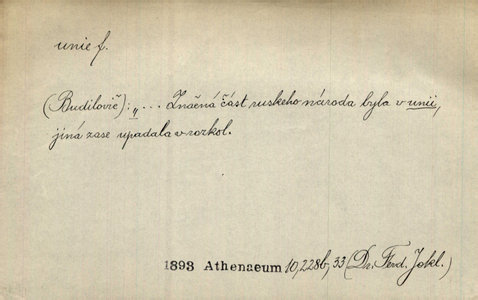 unie f.
(Budilovič): „... Značná část ruskeho národa byla v unii,
jiná zase upadala v rozkol.
1893 Athenaeum 10,228b,33 (Dr. Ferd. Jokl.)